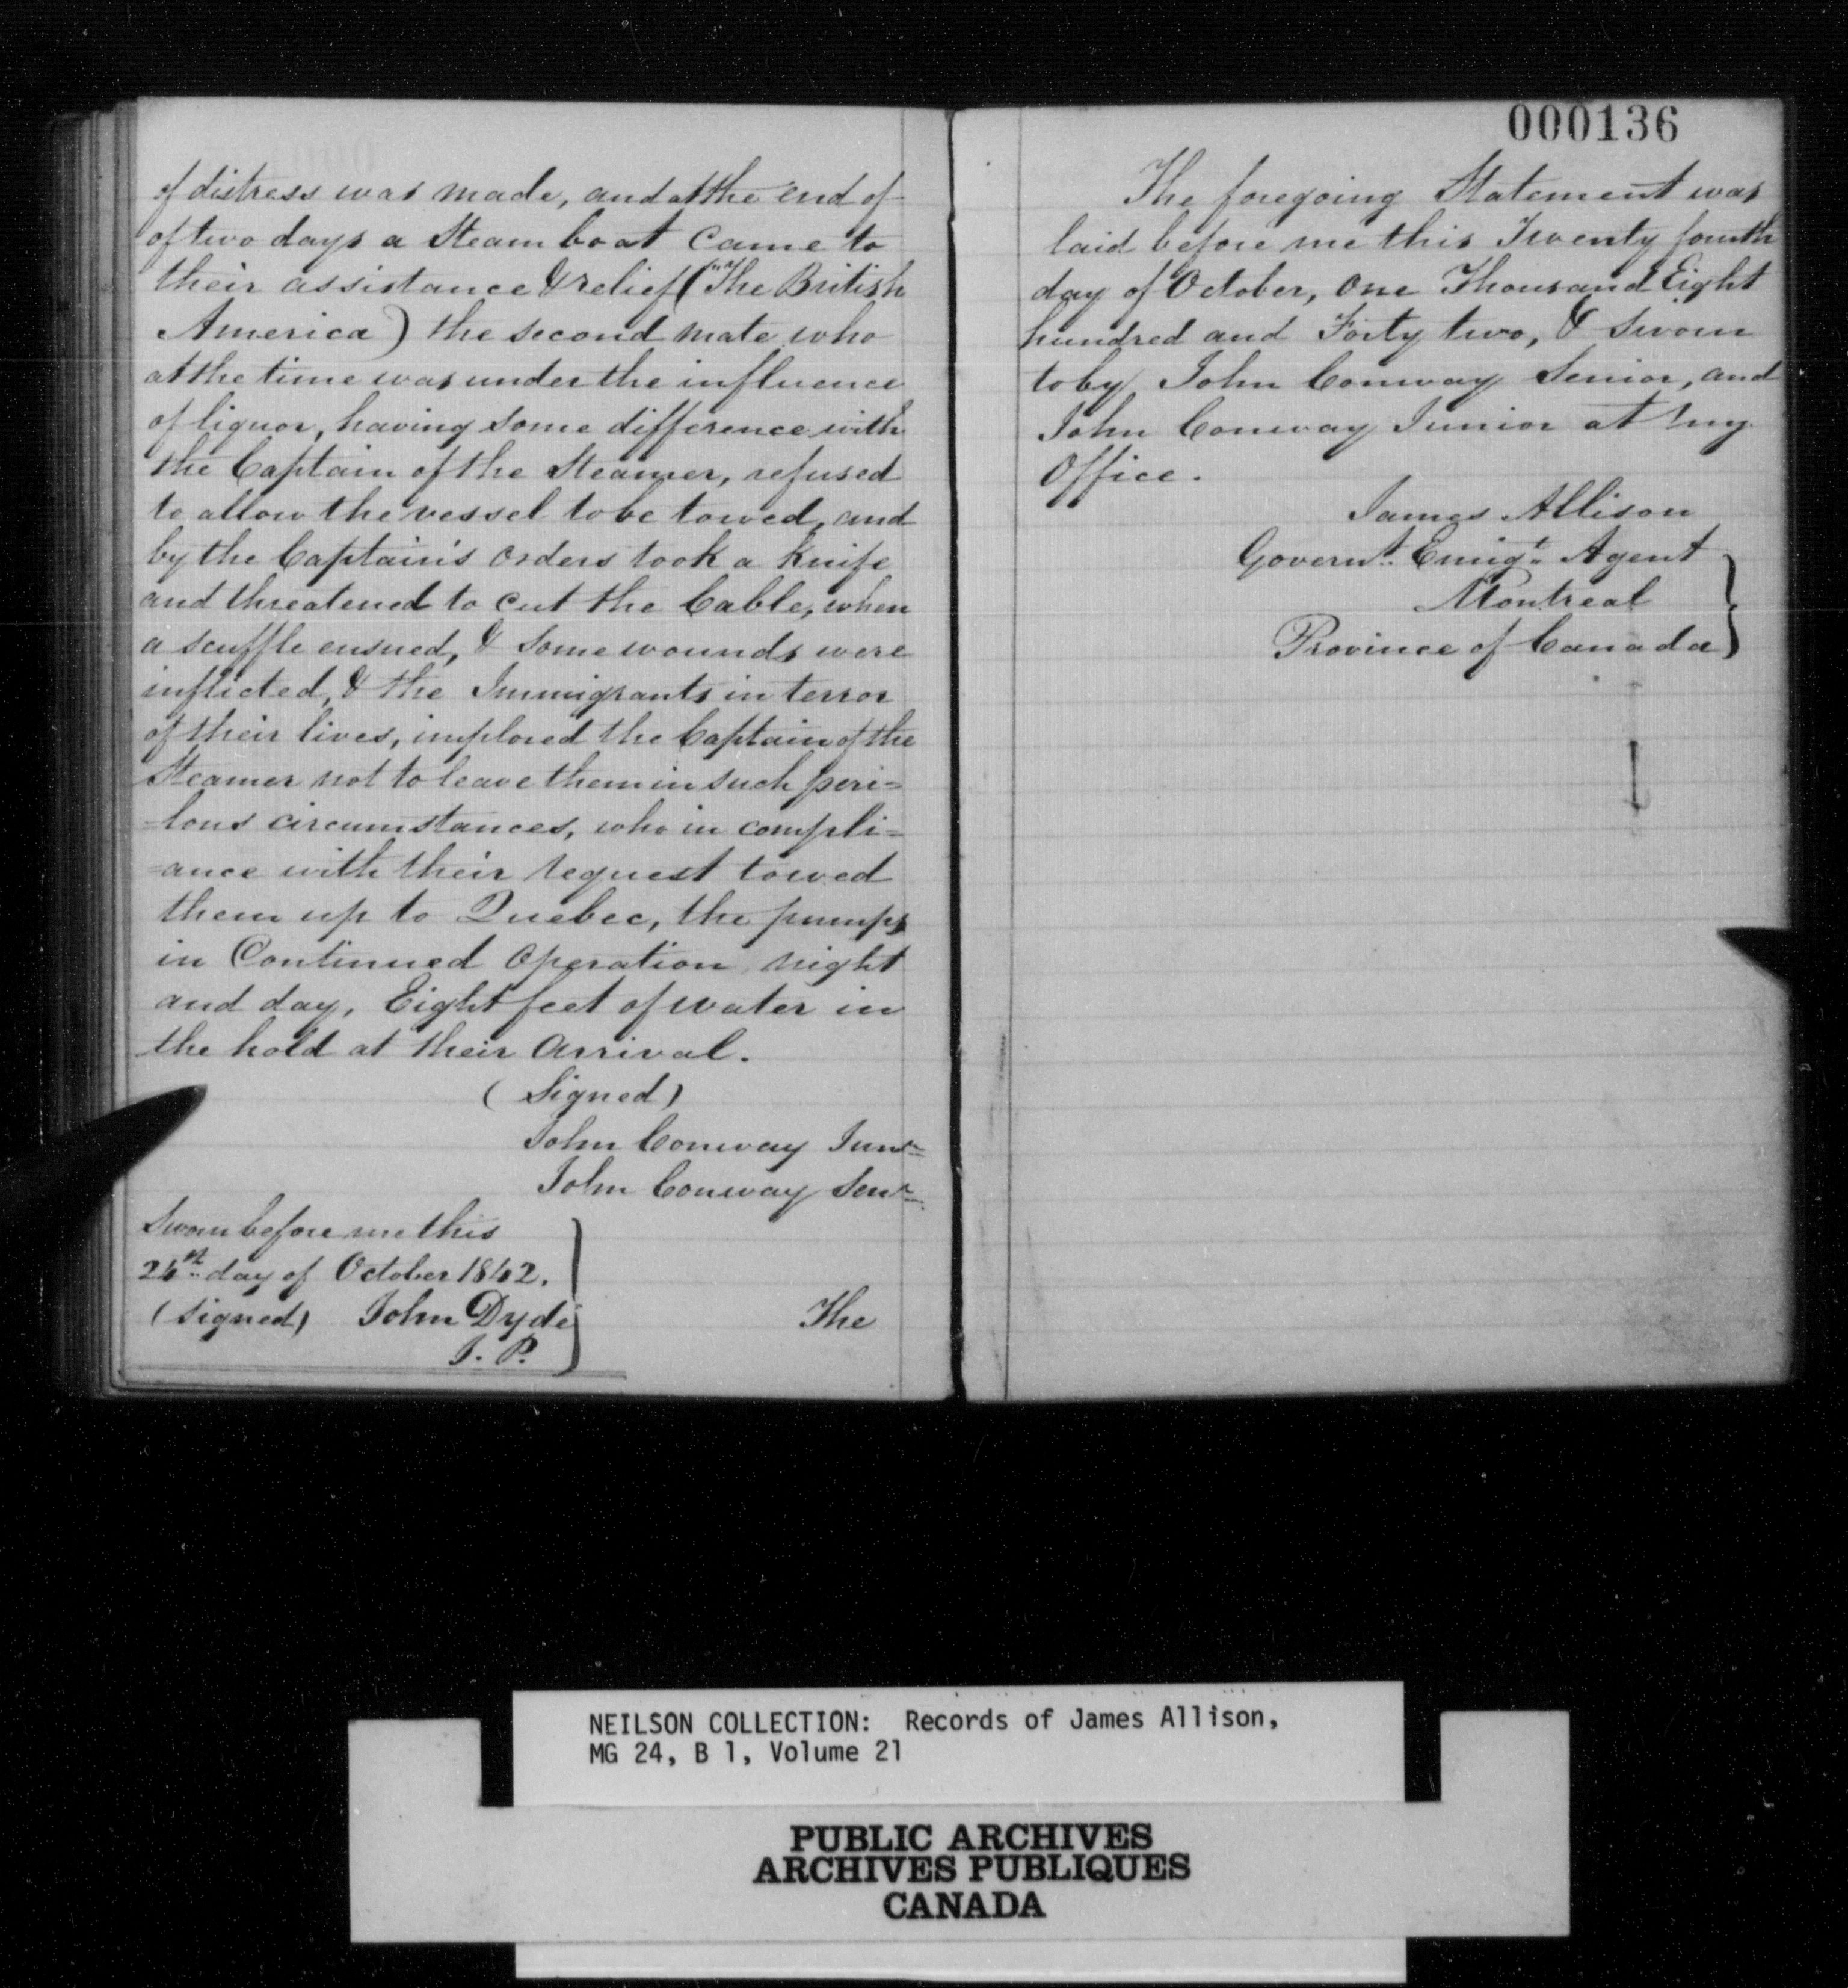 of distress was made, and at the end of
of two days a Steam boat came to
their assistance & relief ("The British
America) the second mate who
at the time was under the influence
of liquor, having some difference with
the Captain of the Steamer, refused
to allow the vessel to be towed, and
by the Captain's orders took a knife
and threatened to cut the Cable, when
a scuffle ensued, & some wounds were
inflicted, & the Immigrants in terror
of their lives, implored the Captain of the
Steamer not to leave them in such peri=
=lous circumstances, who in compli=
=ance with their request towed
them up to Quebec, the pumps
in Continued Operation night
and day, Eight feet of water in
the hold at their Arrival.
(Signed)
John Conway Junr
John Conway Senr
Sworn before me this
24th day of October 1842.
(signed) John Dyde
J. P.
The
000136
The foregoing Statement was
laid before me this Twenty fourth
day of October, One Thousand Eight
hundred and Forty two, & Sworn
to by John Conway Senior, and
John Conway Junior at my
Office.
James Allison
Governt. Emigt. Agent
Montreal
Province of Canada
NEILSON COLLECTION: Records of James Allison,
MG 24, B 1, Volume 21
PUBLIC ARCHIVES
ARCHIVES PUBLIQUES
CANADA